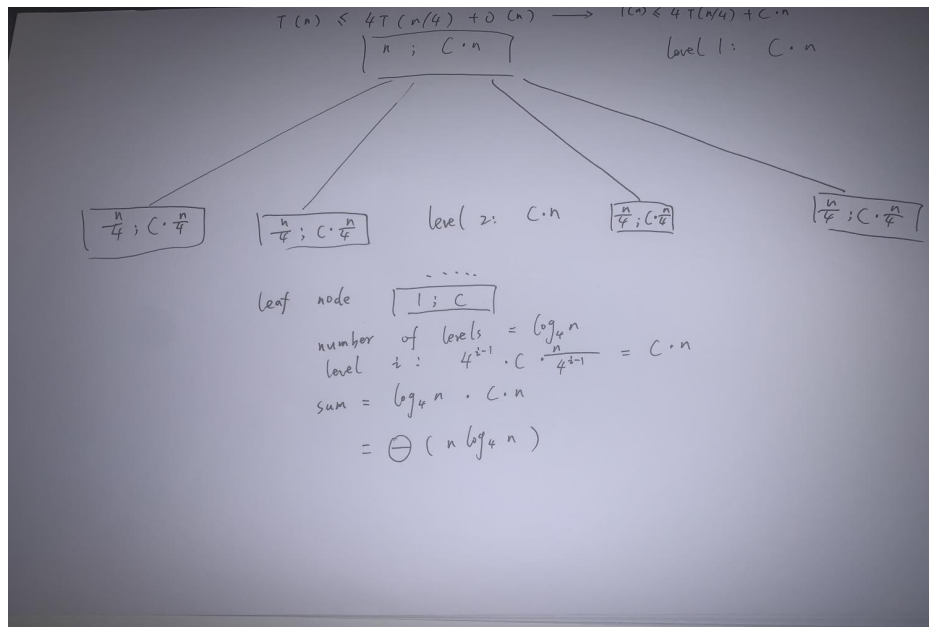 T(n) ≤ 4T(n/4) + O(n) ⟶ T(n) ≤ 4T(n/4) + C·n
n ; C·n
level 1: C·n
n/4 ; C·n/4
n/4 ; C·n/4
level 2: C·n
n/4 ; C·n/4
n/4 ; C·n/4
.....
leaf node 1; C
number of levels = log₄n
level i: 4^{i-1} · C · n/4^{i-1} = C·n
sum = log₄n · C·n
= Θ(n log₄ n)